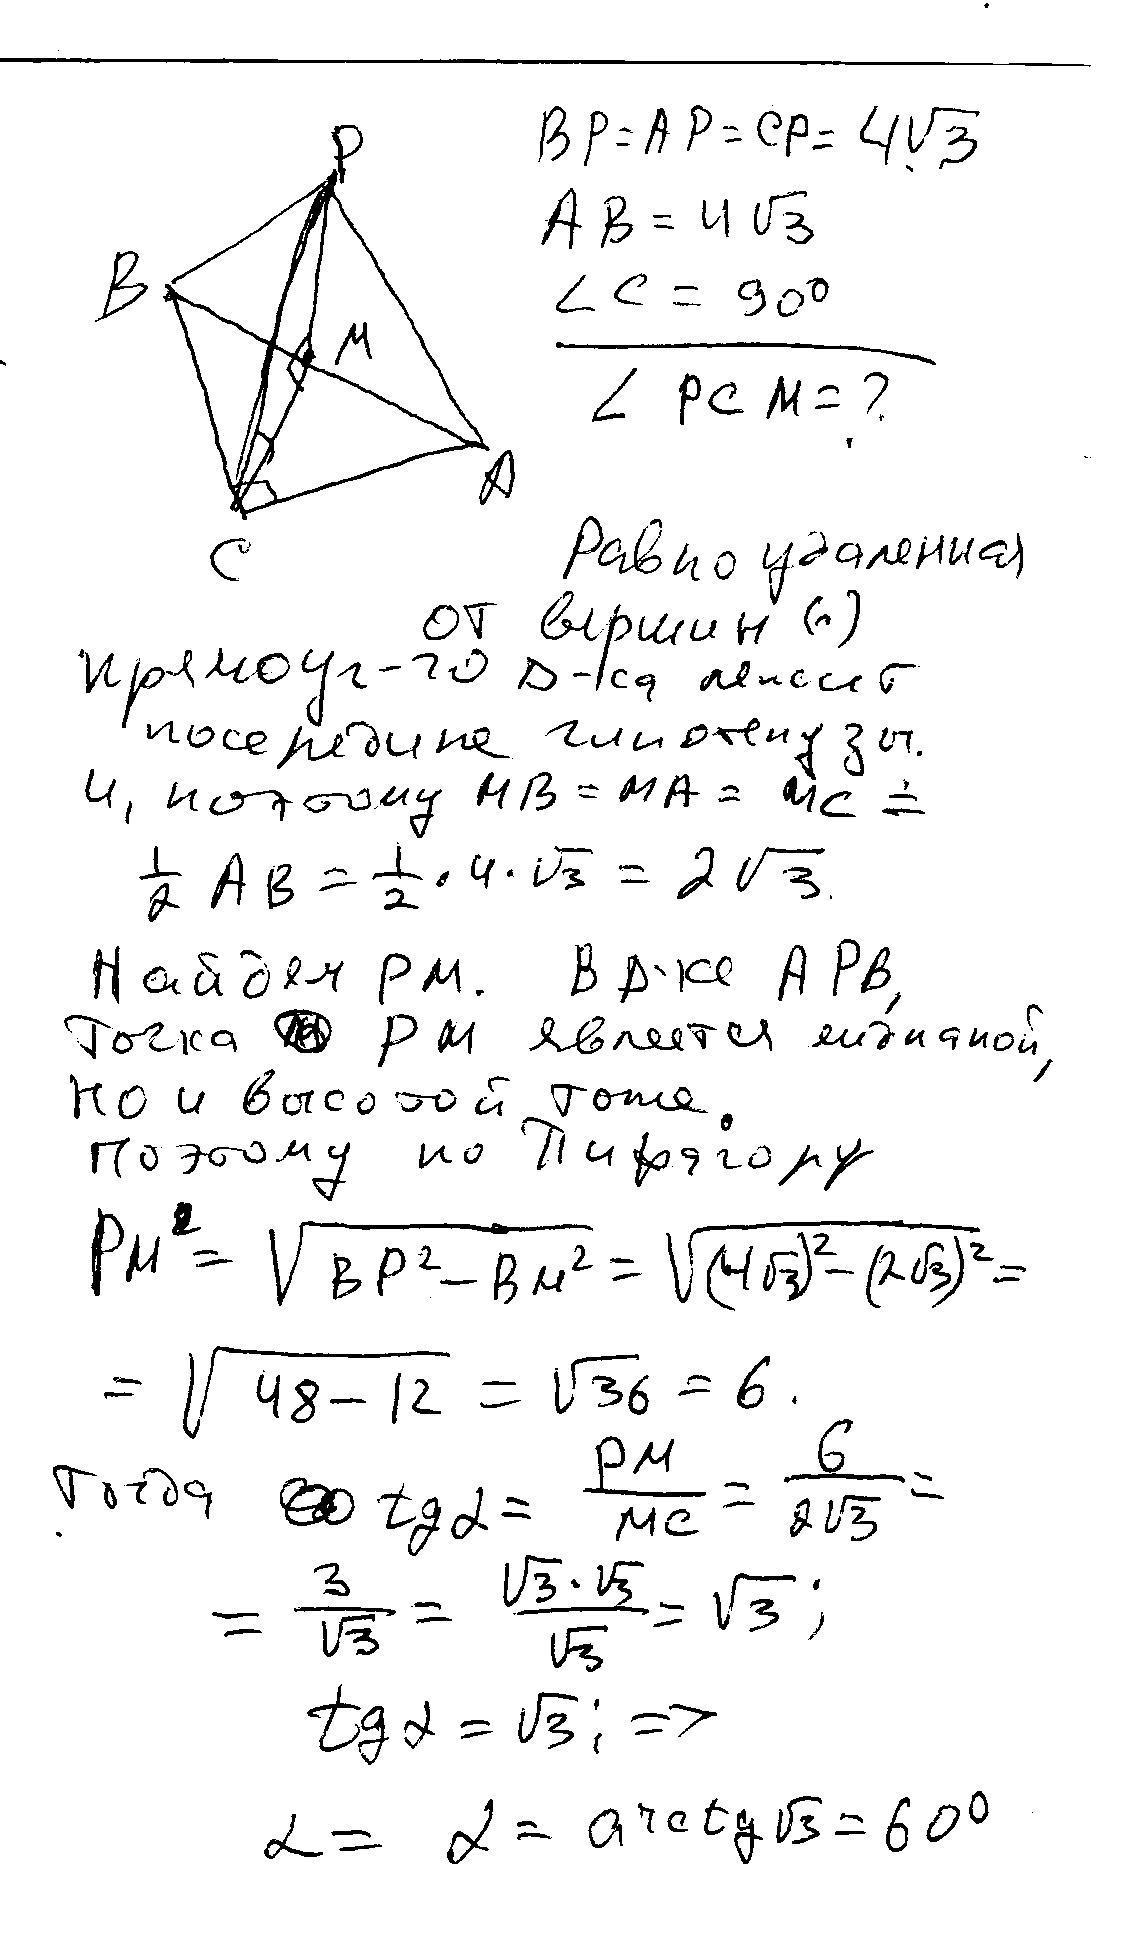 P
B
M
A
C
BP=AP=CP=4√3
AB=4√3
∠C=90°
∠PCM=?
Равноудаленная
от вершин (·)
прямоуг-го Δ-ка лежит
посередине гипотенузы.
И, поэтому MB=MA=MC=
1/2 AB=1/2·4·√3=2√3.
Найдем PM. В Δ-ке APB,
точка PM является медианой,
но и высотой тоже.
Поэтому по Пифагору
PM²=√(BP²-BM²)=√((4√3)²-(2√3)²)=
=√(48-12)=√36=6.
Тогда tgα=PM/MC=6/(2√3)=
=3/√3=(√3·√3)/√3=√3;
tgα=√3; =>
α= α=arctg√3=60°